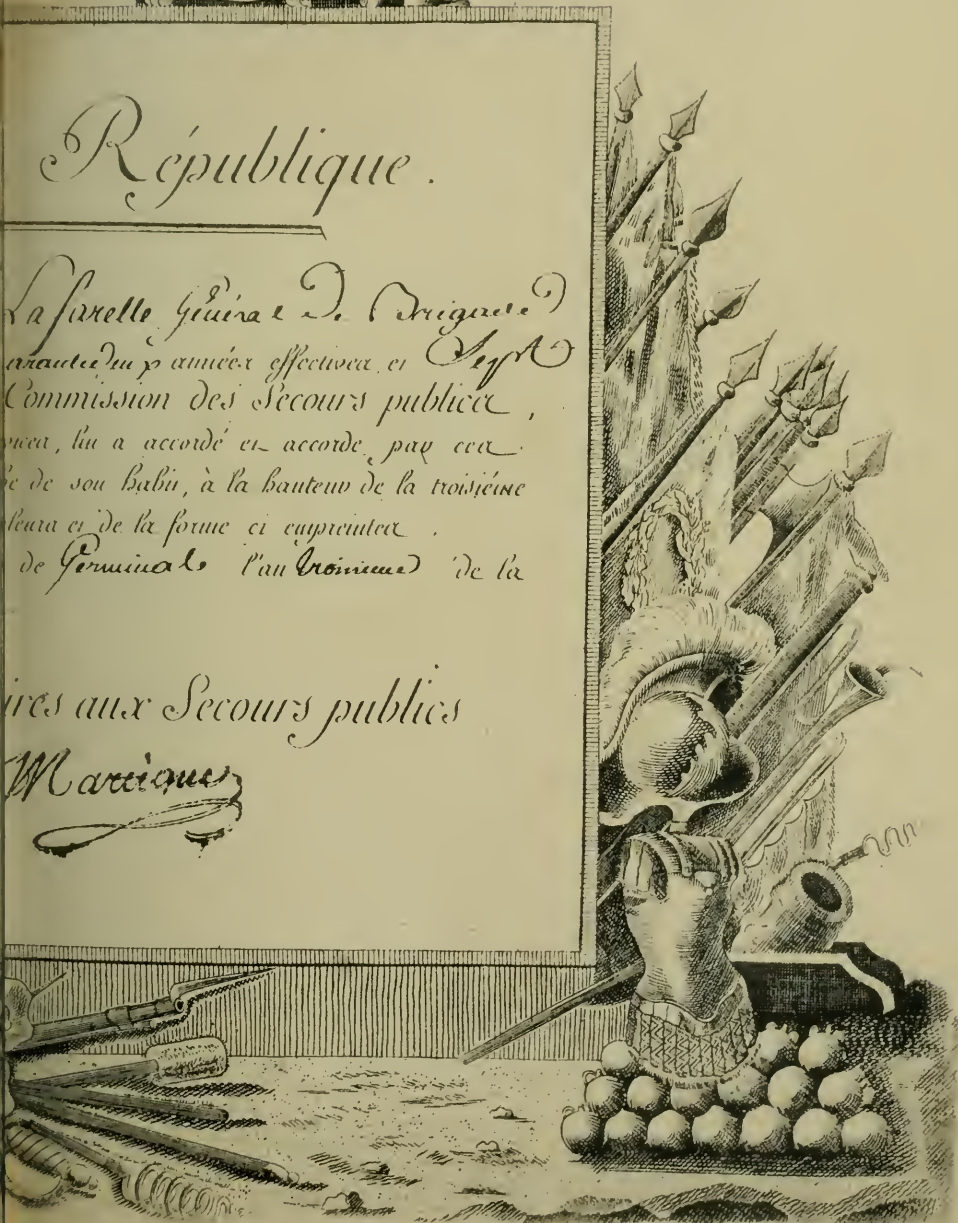 République.
La farelle Général De Brigade
années effectives et Sept
Commission des Secours publics,
lui a accordé et accorde, par ces
de son habit, à la hauteur de la troisiéme
leurs et de la forme ci empreintes.
de Germinal l'an troisieme de la
ires aux Secours publics
Martique